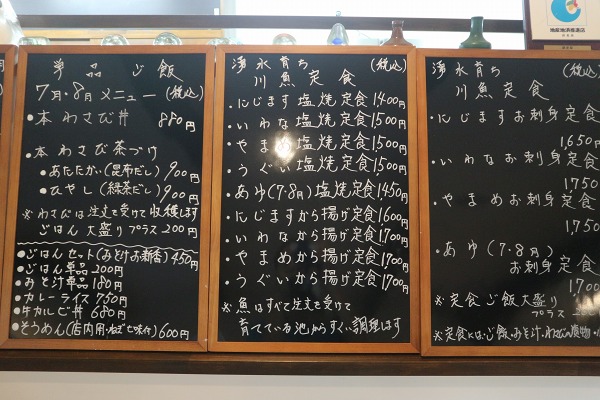 単品ご飯
7月・8月メニュー(税込)
・本わさび丼 880円
・本わさび茶づけ
・あたたかい(昆布だし) 900円
・ひやし(緑茶だし) 900円
※わさびは注文を受けて収穫します
ごはん大盛りプラス200円
・ごはんセット(みそ汁お新香)450円
・ごはん単品200円
・みそ汁単品180円
・カレーライス750円
・牛カルビ丼680円
・そうめん(店内用・わさび味付)600円
湧水育ち (税込)
川魚定食
・にじます塩焼定食1400円
・いわな塩焼定食1500円
・やまめ塩焼定食1500円
・うぐい塩焼定食1500円
・あゆ(7・8月)塩焼定食1450円
・にじますから揚げ定食1600円
・いわなから揚げ定食1700円
・やまめから揚げ定食1700円
・うぐいから揚げ定食1700円
※魚はすべて注文を受けて
育てている池からすくい調理します
湧水育ち (税込)
川魚定食
・にじますお刺身定食
1,650円
・いわなお刺身定食
1,750
・やまめお刺身定食
1,750
・あゆ(7・8月)
お刺身定食
1700
※定食ご飯大盛り
プラス
※定食には、ご飯・みそ汁・わさび漬物・